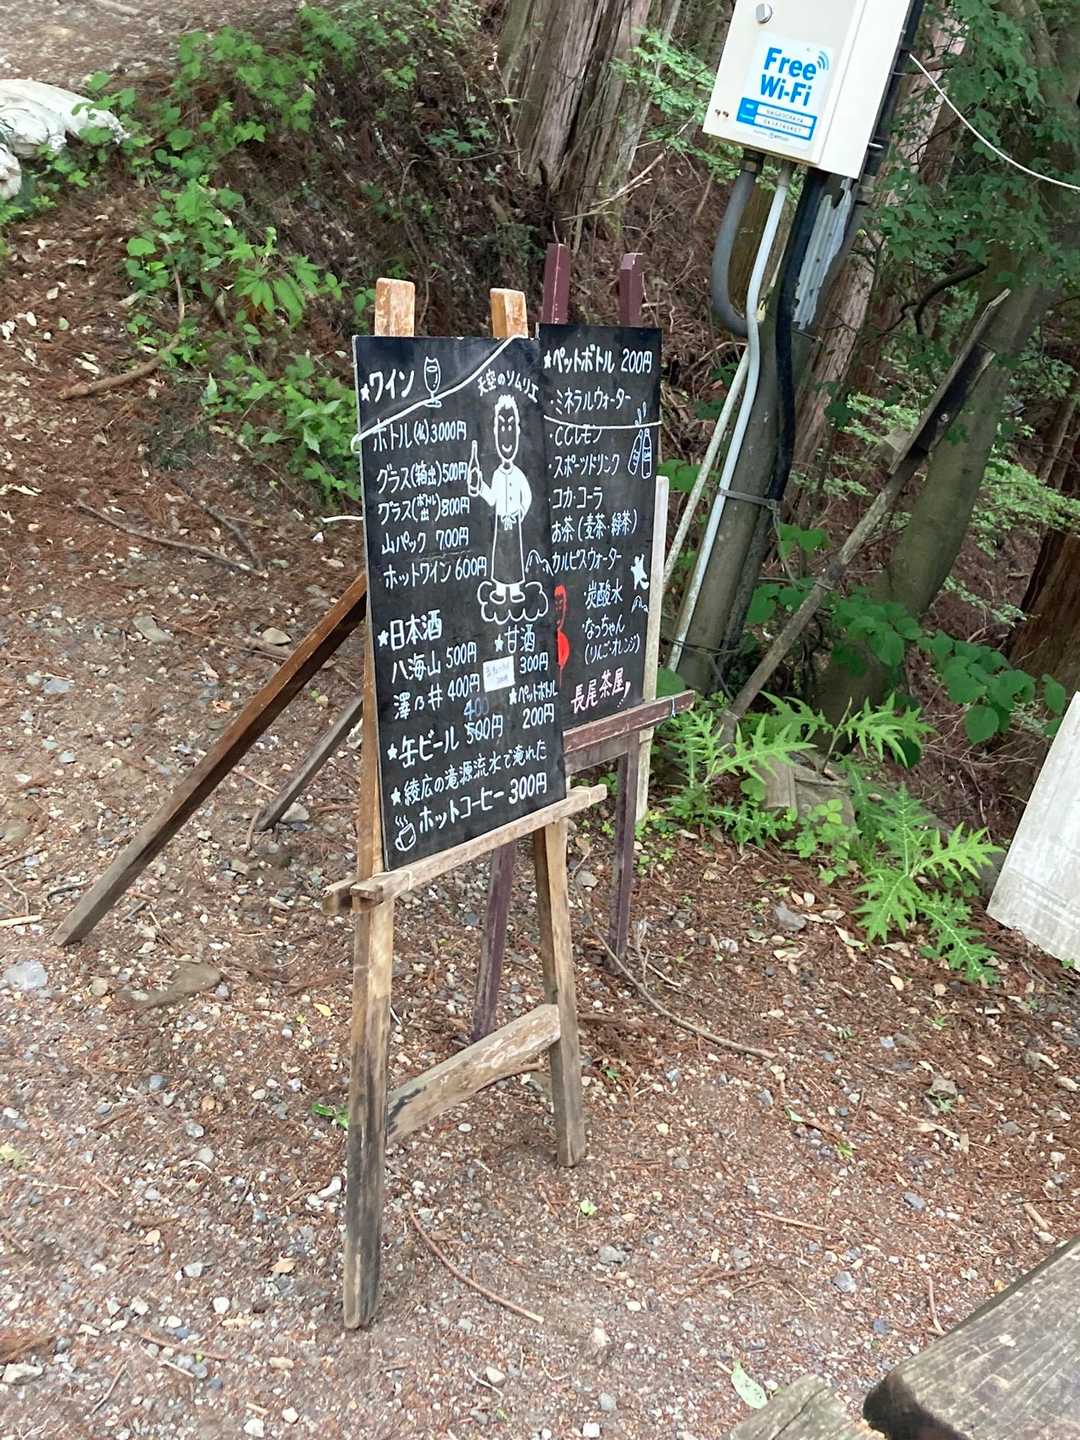 Free
Wi-Fi
★ワイン
天空のソムリエ
ボトル(仏)3000円
グラス(箱出)500円
グラス(ボトル出)800円
山パック 700円
ホットワイン600円
★日本酒
八海山 500円
澤乃井 400円
★甘酒
300円
★ペットボトル
200円
★缶ビール 500円
★綾広の滝源流水で淹れた
ホットコーヒー 300円
★ペットボトル 200円
・ミネラルウォーター
・CCレモン
・スポーツドリンク
コカ・コーラ
お茶(麦茶・緑茶)
カルピスウォーター
・炭酸水
・なっちゃん
(りんご・オレンジ)
長尾茶屋